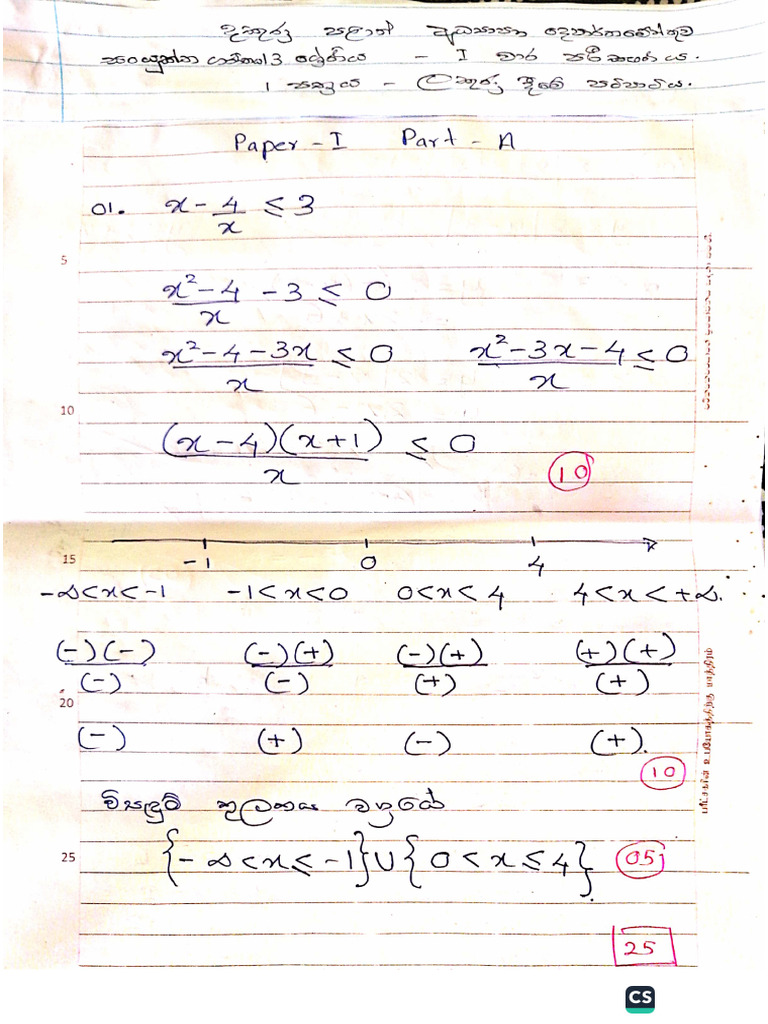 දකුණු පළාත් අධ්‍යාපන දෙපාර්තමේන්තුව
සංයුක්ත ගණිතය 13 ශ්‍රේණිය - I වාර පරීක්ෂණය.
1 පත්‍රය - ලකුණු දීමේ පටිපාටිය.
Paper - I Part - A
01. x - 4/x ≤ 3
5
(x² - 4)/x - 3 ≤ 0
(x² - 4 - 3x)/x ≤ 0 (x² - 3x - 4)/x ≤ 0
10
(x - 4)(x + 1)/x ≤ 0
10
15
-1 0 4 x
-∞ < x < -1 -1 < x < 0 0 < x < 4 4 < x < +∞.
(-)(-)/(-) (-)(+)/(-) (-)(+)/(+) (+)(+)/(+)
20
(-) (+) (-) (+).
10
විසඳුම් කුලකය වනුයේ
25
{-∞ < x ≤ -1} ∪ {0 < x ≤ 4}. 05
25
CS